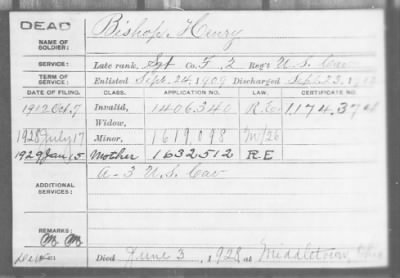 DEAD
NAME OF SOLDIER: Bishop, Henry
SERVICE: Late rank, Sgt Co. F, 2 Reg't U.S. Cav
TERM OF SERVICE: Enlisted Sept. 24, 1909 Discharged Sept. 23, 1912
DATE OF FILING. CLASS. APPLICATION NO. LAW. CERTIFICATE NO.
1912 Oct. 7 Invalid, 1406340 R.E. 1174374
Widow,
1928 July 17 Minor, 1619098
1929 Jan. 15 Mother 1632512 R E
ADDITIONAL SERVICES: A-3 U.S. Cav
REMARKS:
Died June 3, 1928 at Middletown, Ohio